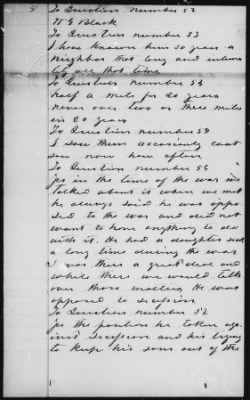 To Question number 52
W G Black
To Question number 53
I have known him 30 years a
neighbor that long and intimate
all that time
To Question number 54
half a mile for 20 years
never over two or three miles
in 30 years
To Question number 55
I saw them occasionly cant
say now how often
To Question number 56
yes in the time of the war we
talked about it when we met
he always said he was oppo
sed to the war and did not
want to have anything to do
with it. He had a daughter sick
a long time during the war
I was there a great deal and
while there we would talk
over those matters He was
opposed to secession
To Question number 57
yes the position he taken aga
inst Secession and his trying
to keep his sons out of the